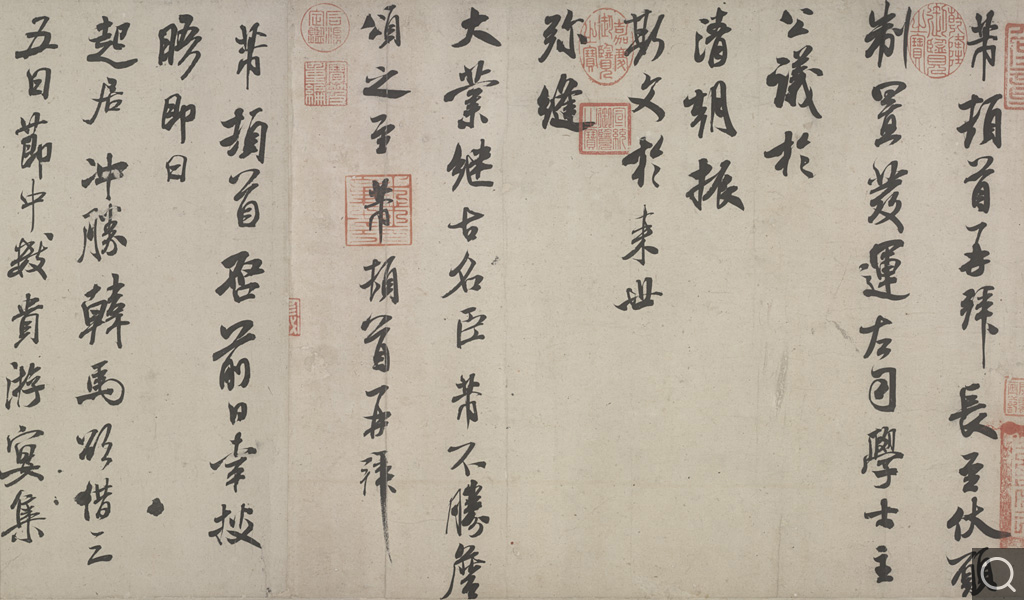 芾頓首再拜長至伏願
制置發運左司學士主
公議於
清朝振
斯文於來世
弥縫
大業継古名臣芾不勝詹
頌之至芾頓首再拜
芾頓首啓前日幸披
晤即日
起居冲勝韓馬欲借三
五日節中數貴游宴集